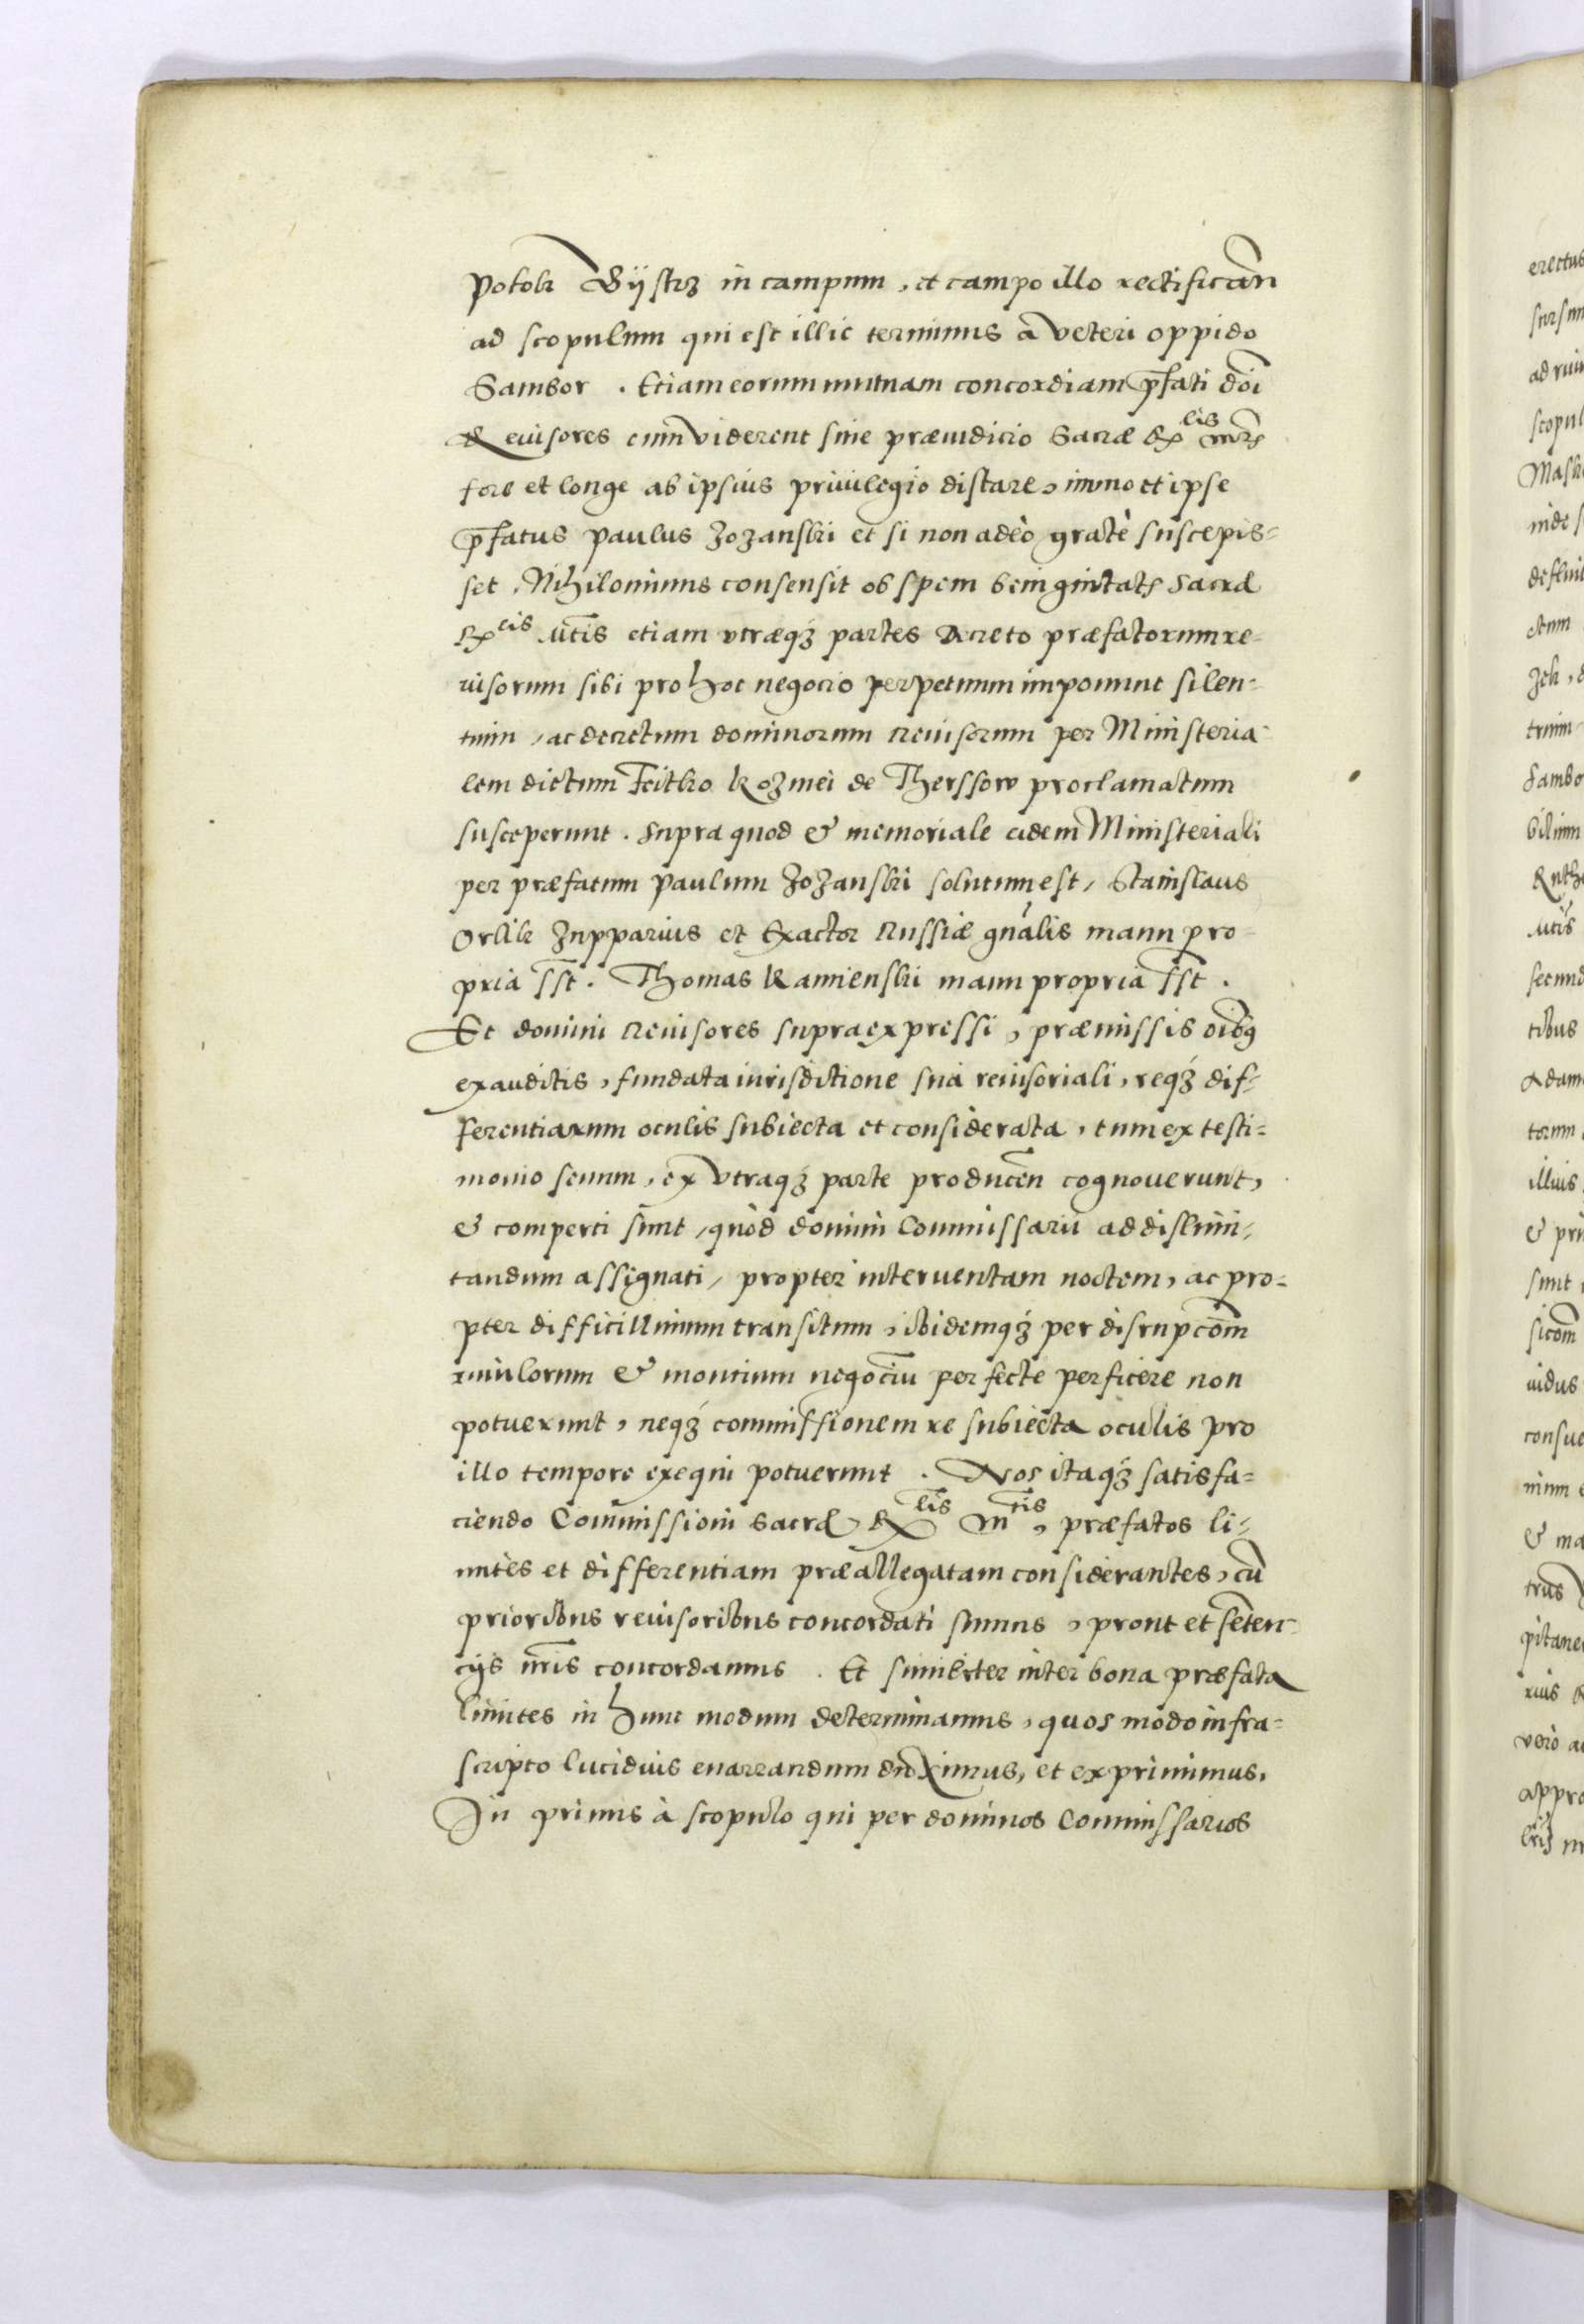 Potok Bÿstrz in campum, et campo illo rectifican̄
ad scopulum qui est illic terminus a veteri oppido
Sambor. Etiam eorum mutuam concordiam p̄fati do͞i
Reuisores cum viderent sine præiudicio Sacræ Rx͞lis m͞tis
fore et longe ab ipsius priuilegio distare, immo et ipse
p̄fatus Paulus Zozanski et si non adeò gratè suscepis=
set, Nihilominus consensit ob spem benignitatis Sacræ
Rx͞lis M͞tis etiam vtræq3 partes decreto præfatorum re=
uisorum sibi pro hoc negocio perpetuum imponunt silen=
tium, ac decretum dominorum Reuisorum per Ministeria=
lem dictum Feitko Kozmei de Therssow proclamatum
susceperunt. Supra quod & memoriale eidem Ministeriali
per præfatum Paulum Zozanski solutum est, Stanislaus
Orlik Zupparius et Exactor Russiæ gn̄alis manu pro=
pria s͞st. Thomas Kamienski manu propria s͞st.
Et domini Reuisores supra expressi, præmissis o͞ibus
exauditis, fundata iurisditione sua reuisoriali, req3 dif=
ferentiarum oculis subiecta et considerata, tum ex testi=
monio senum, ex vtraq3 parte producen̄ cognouerunt,
& comperti sunt, quòd domini Commissarii ad dislimi=
tandum assignati, propter interuentam noctem, ac pro=
pter difficillimum transitum, ibidemq3 per disrupco͞m
riuulorum & montium negociu͞ perfecte perficere non
potuerunt, neq3 commissionem re subiecta oculis pro
illo tempore exequi potuerunt. Nos itaq3 satisfa=
ciendo Commissioni Sacræ Rx͞lis M͞tis, præfatos li=
mites et differentiam præallegatam considerantes, cu͞
prioribus reuisoribus concordati sumus, prout et sēten=
cijs n͞ris concordamus. Et similiter inter bona præfata
limites in hunc modum determinamus, quos modo infra=
scripto lucidius enarrandum duximus, et exprimimus,
In primis à scopulo qui per dominos Commissarios